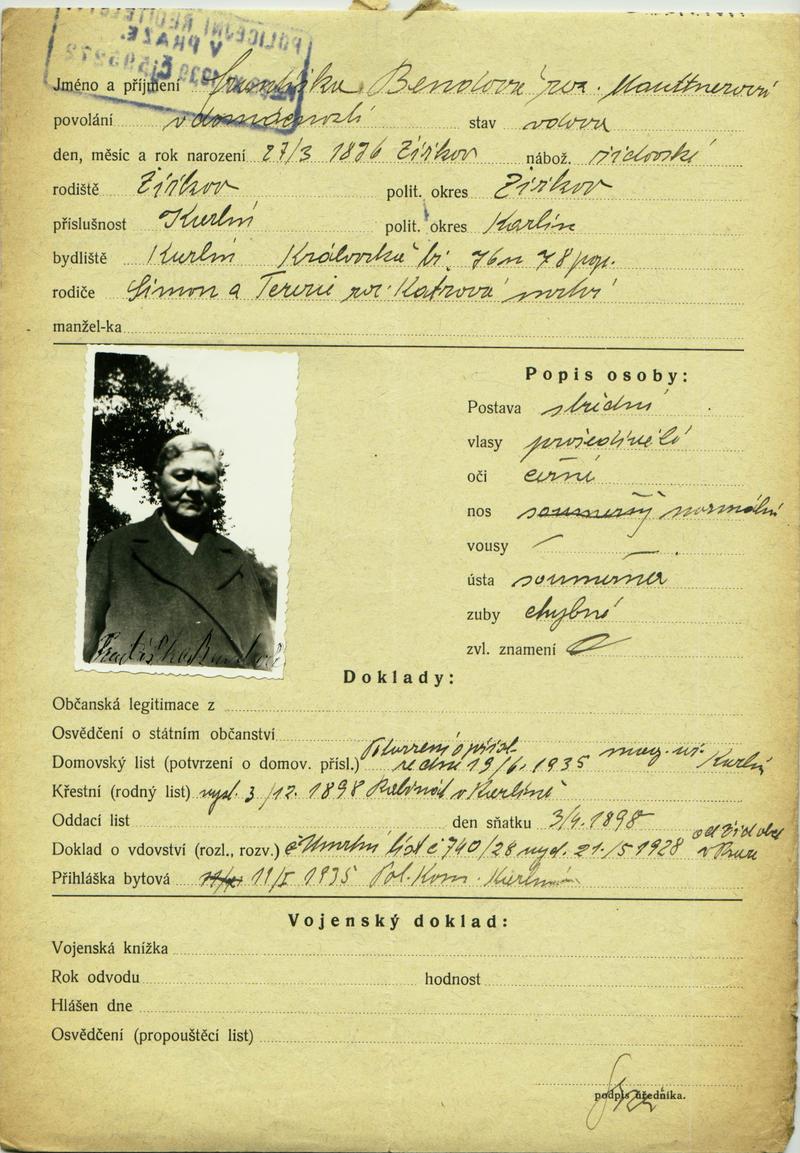 POLICEJNÍ ŘEDITELSTVÍ
V PRAZE.
Jméno a příjmení Františka Bendová roz. Mauttnerová
povolání v domácnosti stav vdova
den, měsíc a rok narození 27/3 1876 Žižkov nábož. židovské
rodiště Žižkov polit. okres Žižkov
příslušnost Karlín polit. okres Karlín
bydliště Karlín Královská tř. 76n 78 pop.
rodiče Simon a Terezie roz. mrtví
manžel-ka
Popis osoby:
Postava střední
vlasy prošedivělé
oči černé
nos souměrný normální
vousy —
ústa souměrná
zuby chybné
zvl. znamení
Františka Bendová
Doklady:
Občanská legitimace z
Osvědčení o státním občanství
Domovský list (potvrzení o domov. přísl.) Potvrzení o přísl. ze dne 19/6. 1935 mag. úř. Karlín
Křestní (rodný list) vyd. 3/12. 1898 Rabinát v Karlíně
Oddací list den sňatku 3/4. 1898
Doklad o vdovství (rozl., rozv.) Úmrtní list č 740/28 vyd. 21./5 1928 od Žid obce v Praze
Přihláška bytová 11/I 1935 Pol. Kom. Karlín
Vojenský doklad:
Vojenská knížka
Rok odvodu hodnost
Hlášen dne
Osvědčení (propouštěcí list)
podpis úředníka.